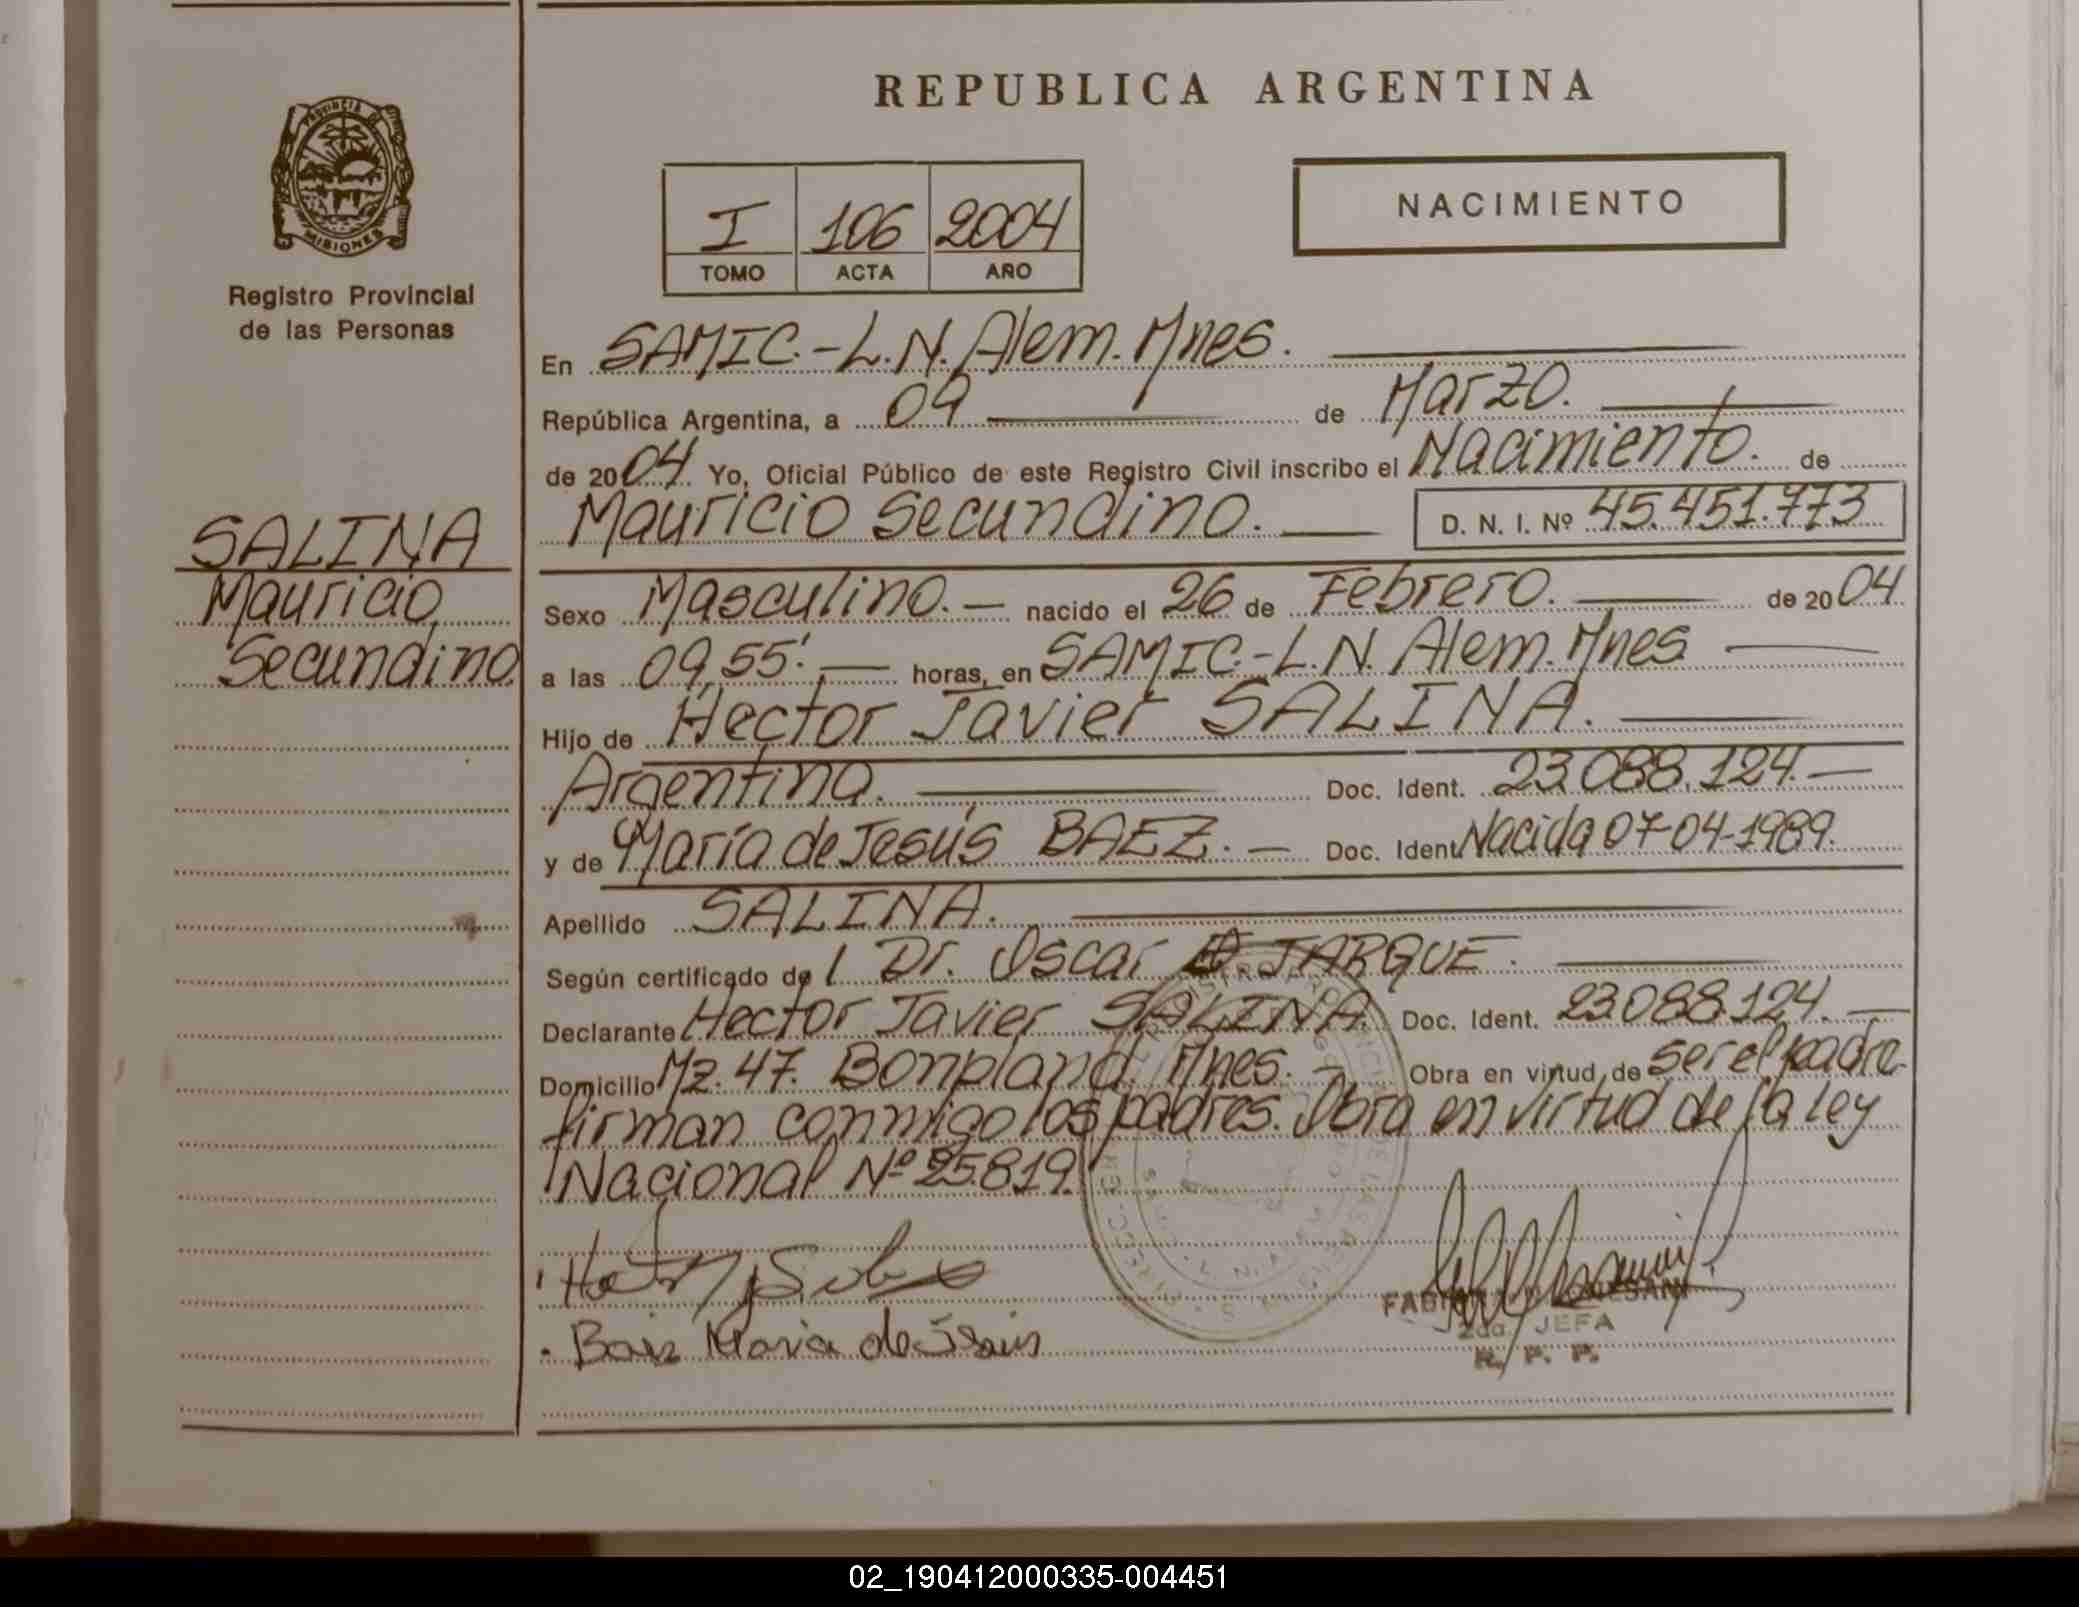 REPUBLICA ARGENTINA
PROVINCIA DE
MISIONES
Registro Provincial
de las Personas
I 106 2004
TOMO ACTA AÑO
NACIMIENTO
SALINA
Mauricio
Secundino.
En SAMIC.-L.N. Alem. Mnes.
República Argentina, a 09 de Marzo.
de 2004. Yo, Oficial Público de este Registro Civil inscribo el Nacimiento. de
Mauricio Secundino. D. N. I. Nº 45.451.773
Sexo Masculino. nacido el 26 de Febrero. de 2004
a las 09,55'. horas, en SAMIC.-L.N. Alem. Mnes
Hijo de Hector Javier SALINA.
Argentina. Doc. Ident. 23.088.124.
y de María de Jesús BAEZ. Doc. Ident Nacida 07-04-1989.
Apellido SALINA.
Según certificado de l Dr. Oscar JARQUE.
Declarante Hector Javier SALINA. Doc. Ident. 23.088.124.
Domicilio Mz. 47. Bonpland. Mnes. Obra en virtud de ser el padre.
firman conmigo los padres. Obra en virtud de la ley
Nacional Nº 25.819.
Baez Maria de Jesus
2da. JEFA
R. P. P.
02_190412000335-004451